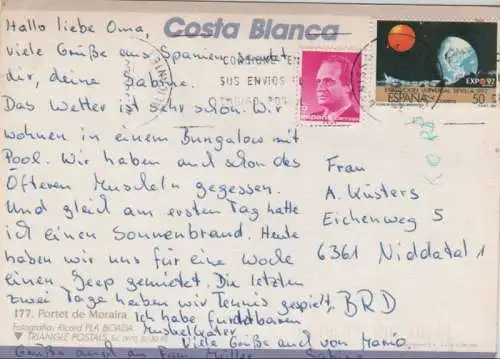 Costa Blanca
Hallo liebe Oma,
viele Grüße aus Spanien sendet
dir, deine Sabine.
Das Wetter ist sehr schön. Wir
wohnen in einem Bungalow mit
Pool. Wir haben auch schon des
Öfteren Muscheln gegessen.
Und gleich am ersten Tag hatte
ich einen Sonnenbrand. Heute
haben wir uns für eine Woche
einen Jeep gemietet. Die letzten
zwei Tage haben wir Tennis gespielt,
Ich habe furchtbaren
Muskelkater
Viele Grüße auch von Mario
Grüße auch an Fam. Müller
CONSIGNE EN
SUS ENVIOS EL
españa
correos
EXPO 92
ESPAÑA
50
Frau
A. Küsters
Eichenweg 5
6361 Niddatal 1
BRD
177. Portet de Moraira
Fotografía: Ricard PLA BOADA
TRIANGLE POSTALS.